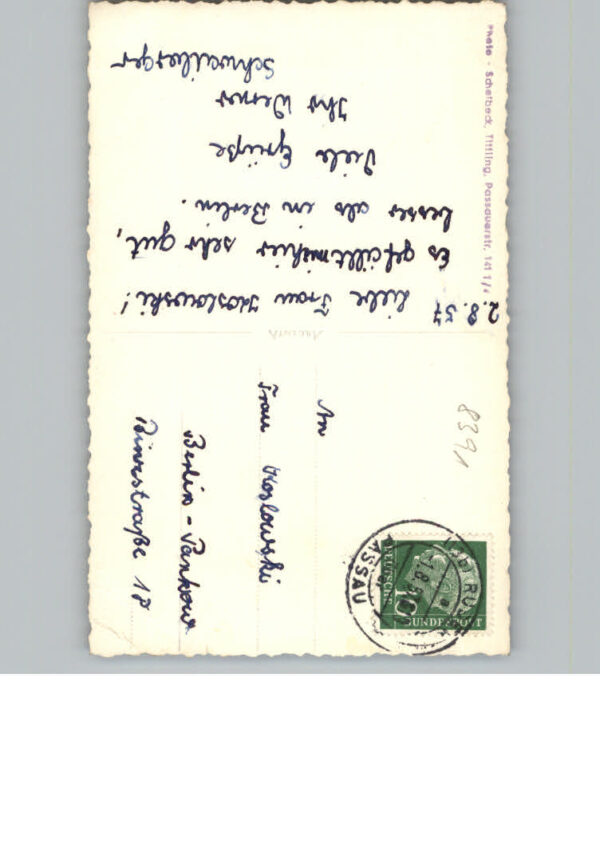 2.8.57
Liebe Frau Koslowski!
Es gefällt mir hier sehr gut,
besser als in Berlin.
Viele Grüße
Ihr Werner
Photo - Scheibeck, Tittling, Passauerstr. 141 1/4
An
Frau Koslowski
Berlin-Pankow
Binzstraße 18
8391
DEUTSCHE
BUNDESPOST
10
PASSAU